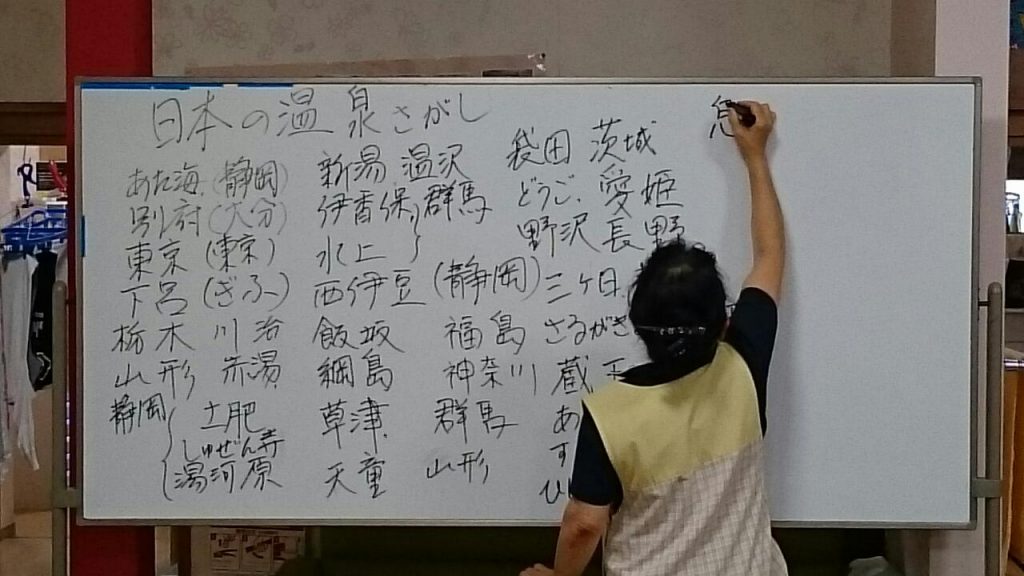 日本の温泉さがし
あた海 (静岡)
別府 (大分)
東京 (東京)
下呂 (ぎふ)
栃木 川治
山形 赤湯
静岡 土肥
しゅぜん寺
湯河原
新湯 温沢
伊香保 群馬
水上
西伊豆 (静岡)
飯坂 福島
綱島 神奈川
草津 群馬
天童 山形
袋田 茨城
どうご 愛姫
野沢 長野
三ケ日
さるがき
蔵
あ
す
ひ